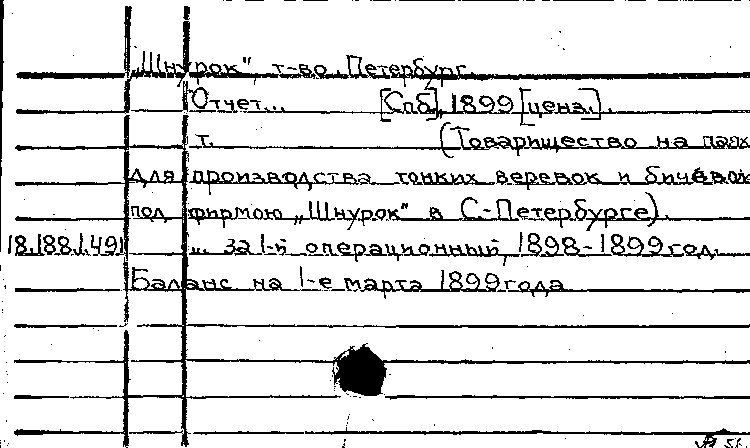 „Шнурок", т-во. Петербург.
Отчет... [Спб], 1899 [цена.].
т. (Товарищество на паях
для производства тонких веревок и бичевок
под фирмою „Шнурок" в С.-Петербурге).
18.188.1.491 ... за 1-й операционный, 1898-1899 год.
Баланс на 1-е марта 1899 года